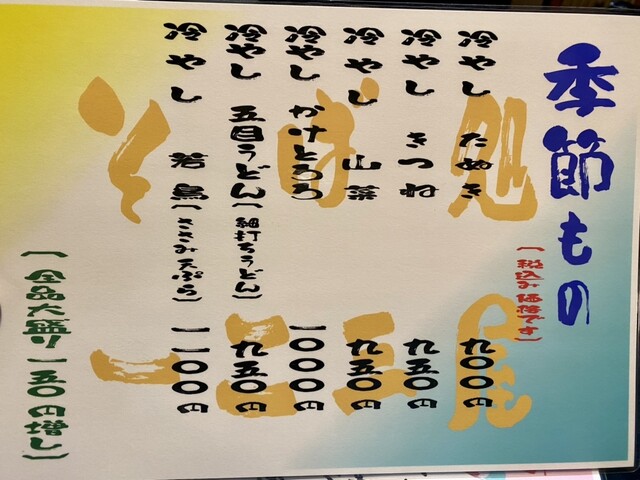 季節もの
(税込み価格です)
冷やし たぬき 九〇〇円
冷やし きつね 九五〇円
冷やし 山菜 九五〇円
冷やし かけとろろ 一〇〇〇円
冷やし 五目うどん(細打ちうどん) 九五〇円
冷やし 若鳥(ささみ天ぷら) 一一〇〇円
(全品大盛り一五〇円増し)